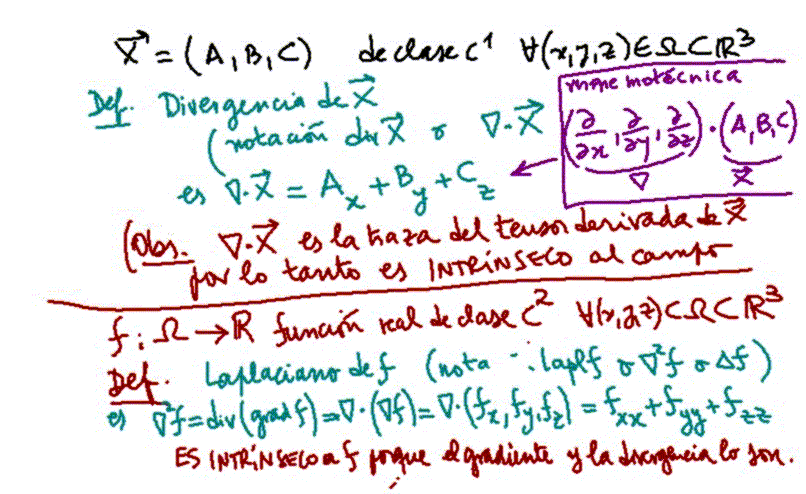 X⃗ = (A, B, C) de clase C¹ ∀(x,y,z) ∈ Ω ⊂ ℝ³
Def. Divergencia de X⃗
(notación div X⃗ o ∇·X⃗
es ∇·X⃗ = A_x + B_y + C_z
mnemotécnica
(∂/∂x, ∂/∂y, ∂/∂z) · (A, B, C)
∇ X⃗
(Obs. ∇·X⃗ es la traza del tensor derivada de X⃗
por lo tanto es INTRÍNSECO al campo
f: Ω → ℝ función real de clase C² ∀(x,y,z) ⊂ Ω ⊂ ℝ³
Def. Laplaciano de f (nota ∴ lapl f o ∇²f o Δf)
es ∇²f = div(grad f) = ∇·(∇f) = ∇·(f_x, f_y, f_z) = f_xx + f_yy + f_zz
ES INTRÍNSECO a f porque el gradiente y la divergencia lo son.